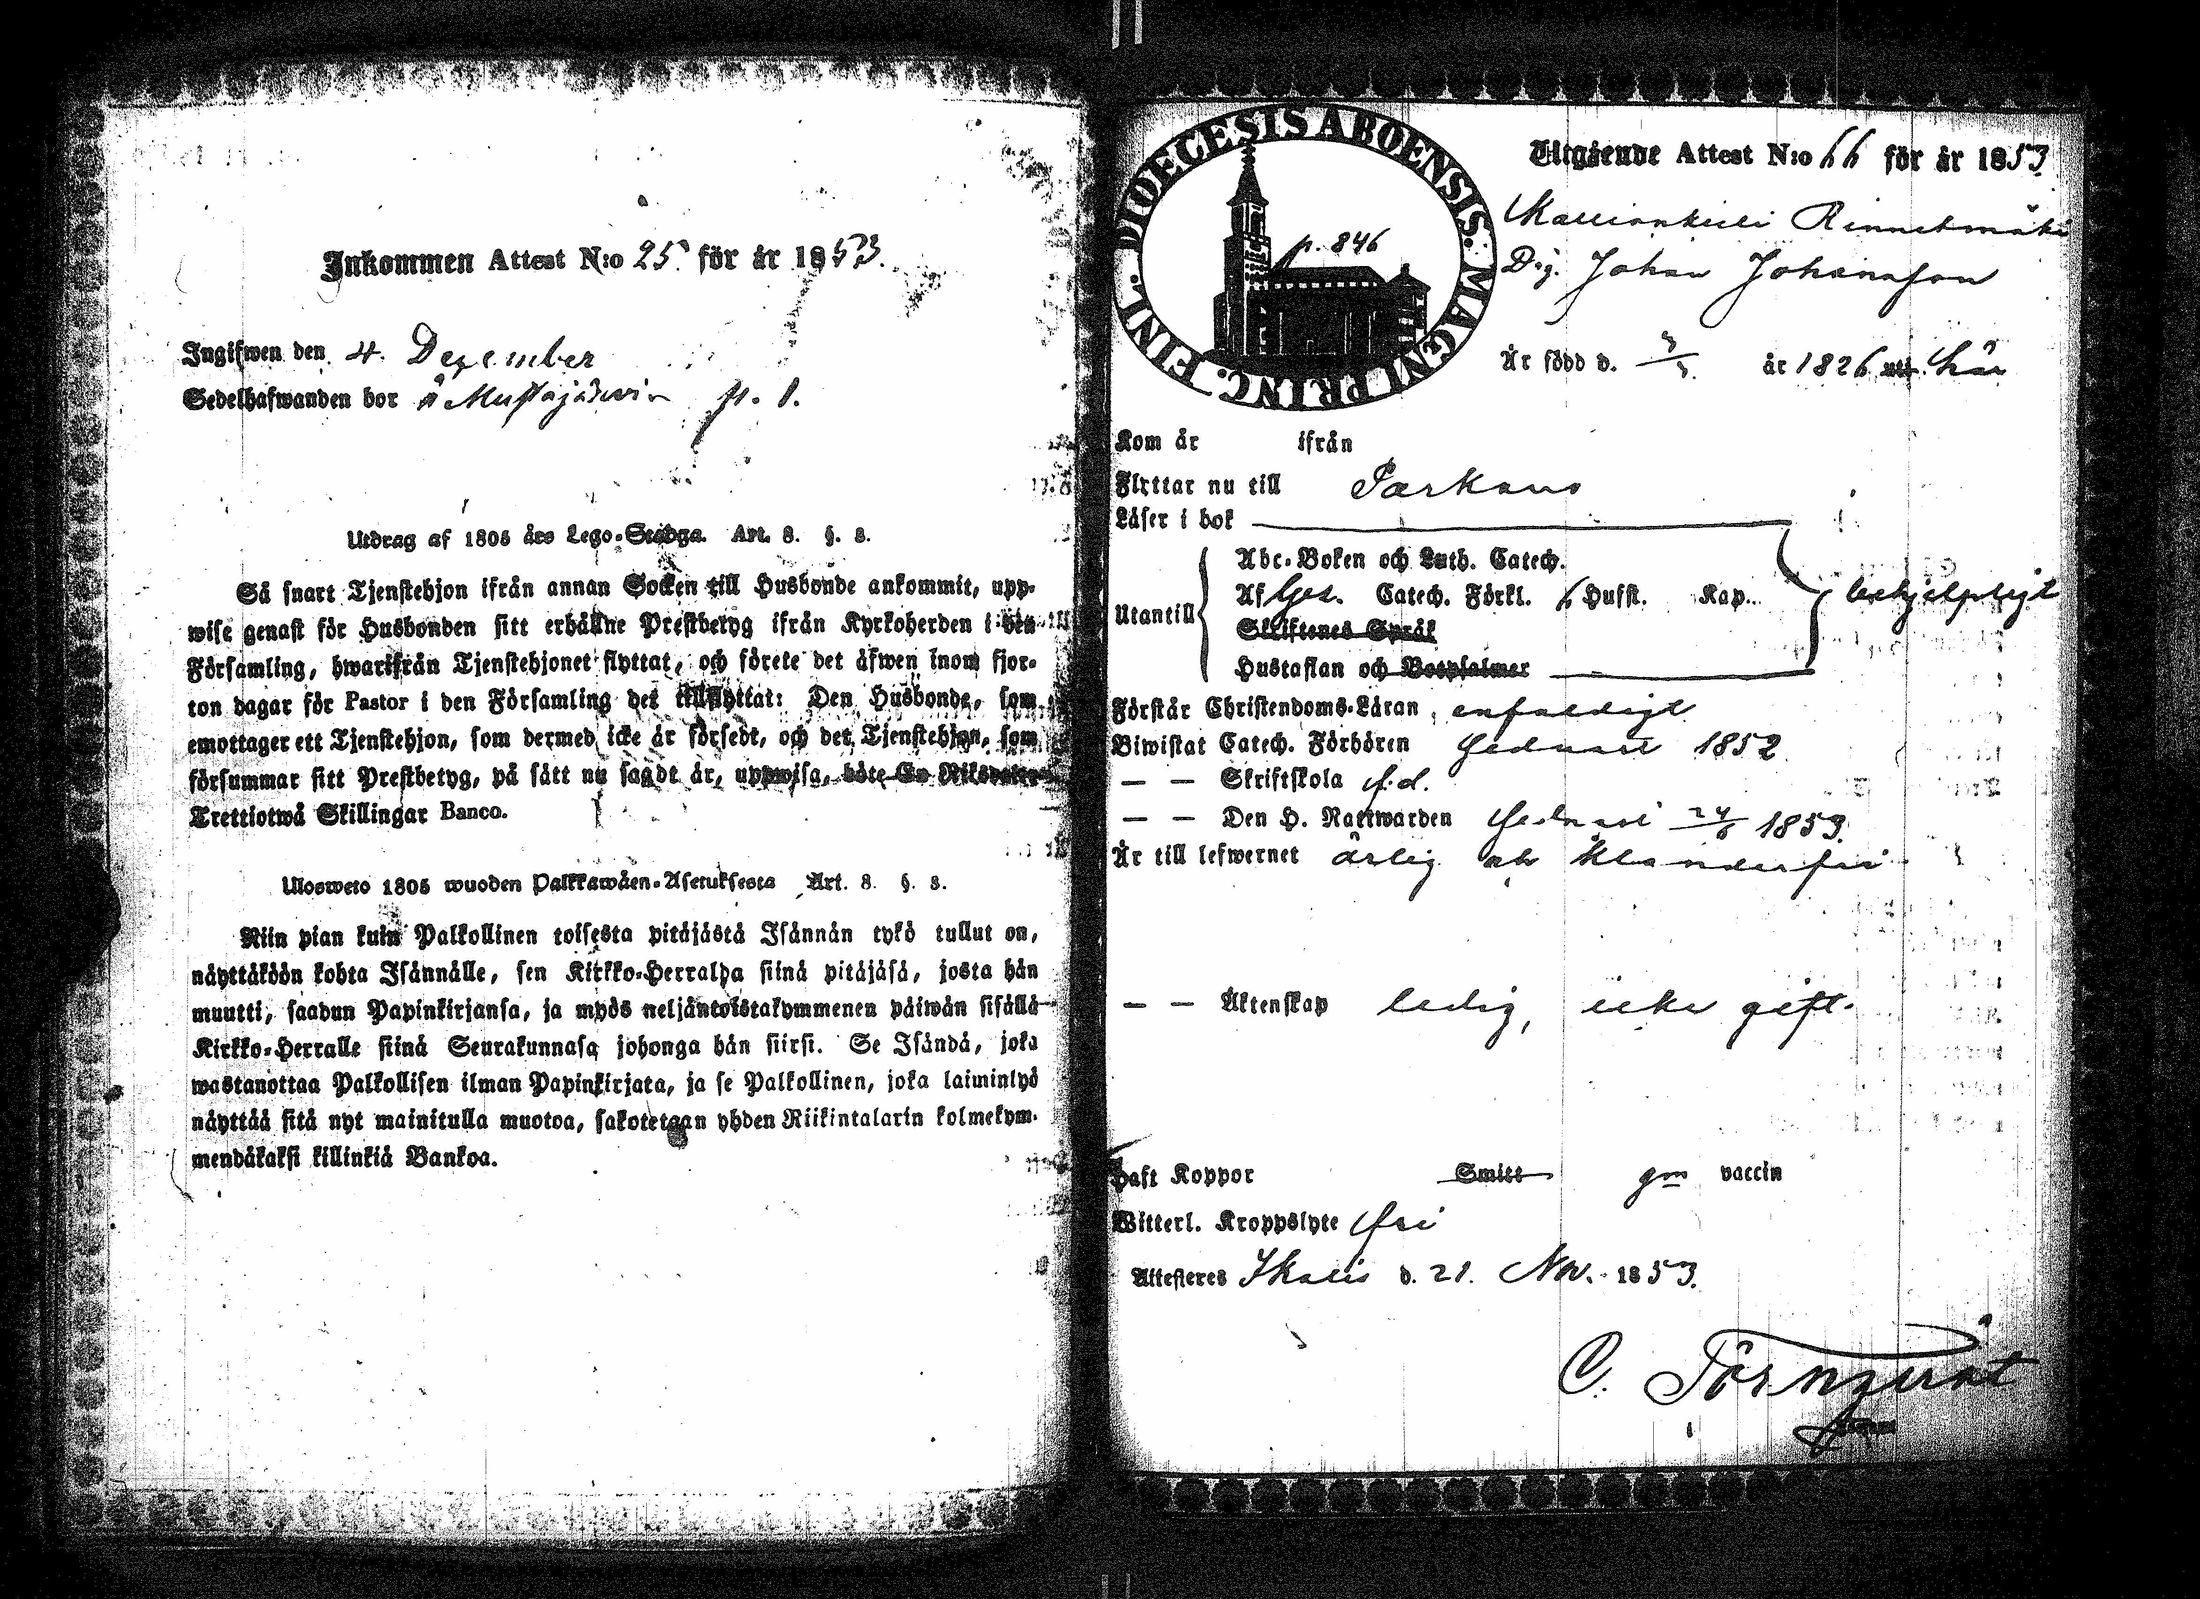 Inkommen Attest N:o 25. för år 1853.
Ingifwen den 4. Dezember
Sedelhafwanden bor å Mustajärvi p. 1.
Utdrag af 1805 års Lego-Stadga. Art. 8. §. 8.
Så snart Tjenstehjon ifrån annan Socken till Husbonde ankommit, upp-
wise genast för Husbonden sitt erhållne Prestbetyg ifrån Kyrkoherden i den
Församling, hwarifrån Tjenstehjonet flyttat, och förete det äfwen inom fjor-
ton dagar för Pastor i den Församling det tillflyttat: Den Husbonde, som
emottager ett Tjenstehjon, som dermed icke är försedt, och det Tjenstehjon, som
försummar sitt Prestbetyg, på sätt nu sagdt är, uppwisa, böte En Riksdaler
Trettiotwå Skillingar Banco.
Ulosweto 1805 wuoden Palkkawäen-Asetuksesta Art. 8. §. 8.
Niin pian kuin Palkollinen toisesta pitäjästä Isännän tykö tullut on,
näyttäköön kohta Isännälle, sen Kirkko-Herralda siinä pitäjäsä, josta hän
muutti, saadun Papinkirjansa, ja myös neljäntoistakymmenen päiwän sisällä
Kirkko-Herralle siinä Seurakunnasa johonga hän siirsi. Se Isändä, joka
wastanottaa Palkollisen ilman Papinkirjata, ja se Palkollinen, joka laiminlyö
näyttää sitä nyt mainitulla muotoa, sakotetaan yhden Riikintalarin kolmekym-
mendäkaksi killinkiä Bankoa.
DIOECESIS ABOENSIS. MAGNI PRINC. FINL.
p. 846
Utgående Attest N:o 66 för år 1853
Rinnetmäki
Drg. Johan Johansson
Är född d. år 1826 här
Kom år ifrån
Flyttar nu till Parkano
Läser i bok
Abc-Boken och Luth. Catech.
Utantill Af Catech. Förkl. Husst. Kap. behjelpligt
Skriftenes Språk
Hustaflan och Botpsalmer
Förstår Christendoms-Läran, enfaldigt
Biwistat Catech. Förhören 1852
— — Skriftskola f.d.
— — Den H. Nattwarden 24/6 1853.
Är till lefwernet ärlig och klanderfri
— — Äktenskap ledig, icke gift.
Haft Koppor Smitt gm vaccin
Witterl. Kroppslyte fri
Attesteres Ikalis d. 21. Nov. 1853.
C. Törnqvist